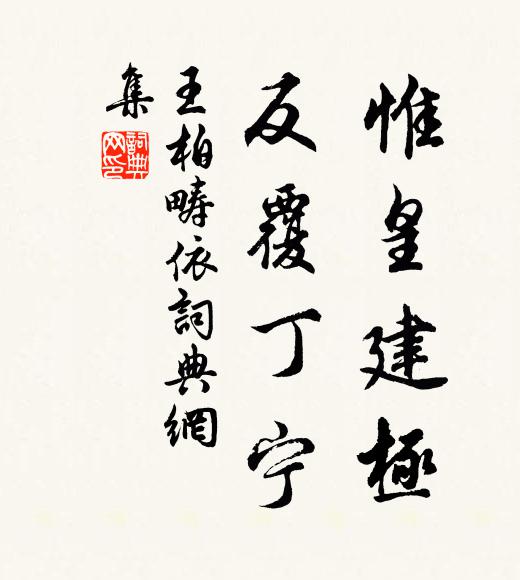 惟皇建極
反覆丁宁
王柏疇依詞典網
集
詞典网印